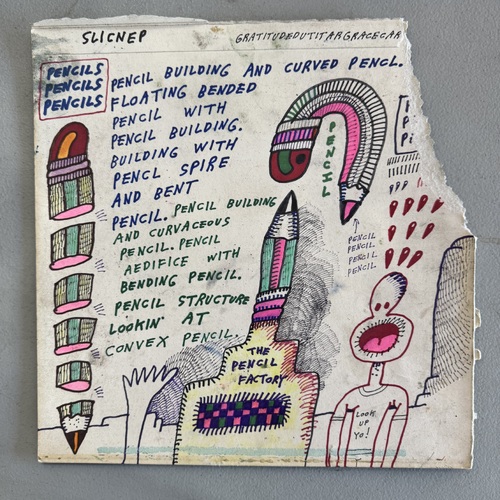 SLICNEP
GRATITUDEDUTITARGRACECAR
PENCILS
PENCILS
PENCILS
PENCIL BUILDING AND CURVED PENCL.
FLOATING BENDED
PENCIL WITH
PENCIL BUILDING.
BUILDING WITH
PENCL SPIRE
AND BENT
PENCIL. PENCIL BUILDING
AND CURVACEOUS
PENCIL. PENCIL
AEDIFICE WITH
BENDING PENCIL.
PENCIL STRUCTURE
LOOKIN' AT
CONVEX PENCIL.
PENCIL
PENCIL
PENCIL.
PENCIL
PENCIL
THE
PENCIL
FACTORY
LOOK
UP
YO!